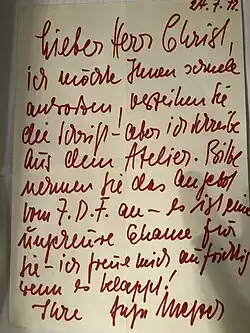 24.7.72
Lieber Herr Christ,
ich möchte Ihnen schnell
antworten! verzeihen Sie
die Schrift – aber ich schreibe
aus dem Atelier. Bitte
nehmen Sie das Angebot
vom Z.D.F. an – es ist eine
Chance für
Sie – ich freue mich aufrichtig
wenn es klappt!
Ihre